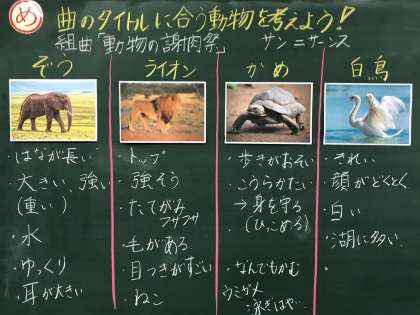 め 曲のタイトルに合う動物を考えよう!
組曲「動物の謝肉祭」 サン=サーンス
ぞう
・はなが長い
・大きい、強い
(重い)
・水
・ゆっくり
・耳が大きい
ライオン
・トップ
・強そう
・たてがみ
フサフサ
・毛がある
・目つきがすごい
・ねこ
かめ
・歩きがおそい
・こうらかたい
→身を守る
(ひっこめる)
・なんでもかむ
ウミガメ
泳ぎはや
白鳥
・きれい
・顔がどくとく
・白い
・湖に多い
・